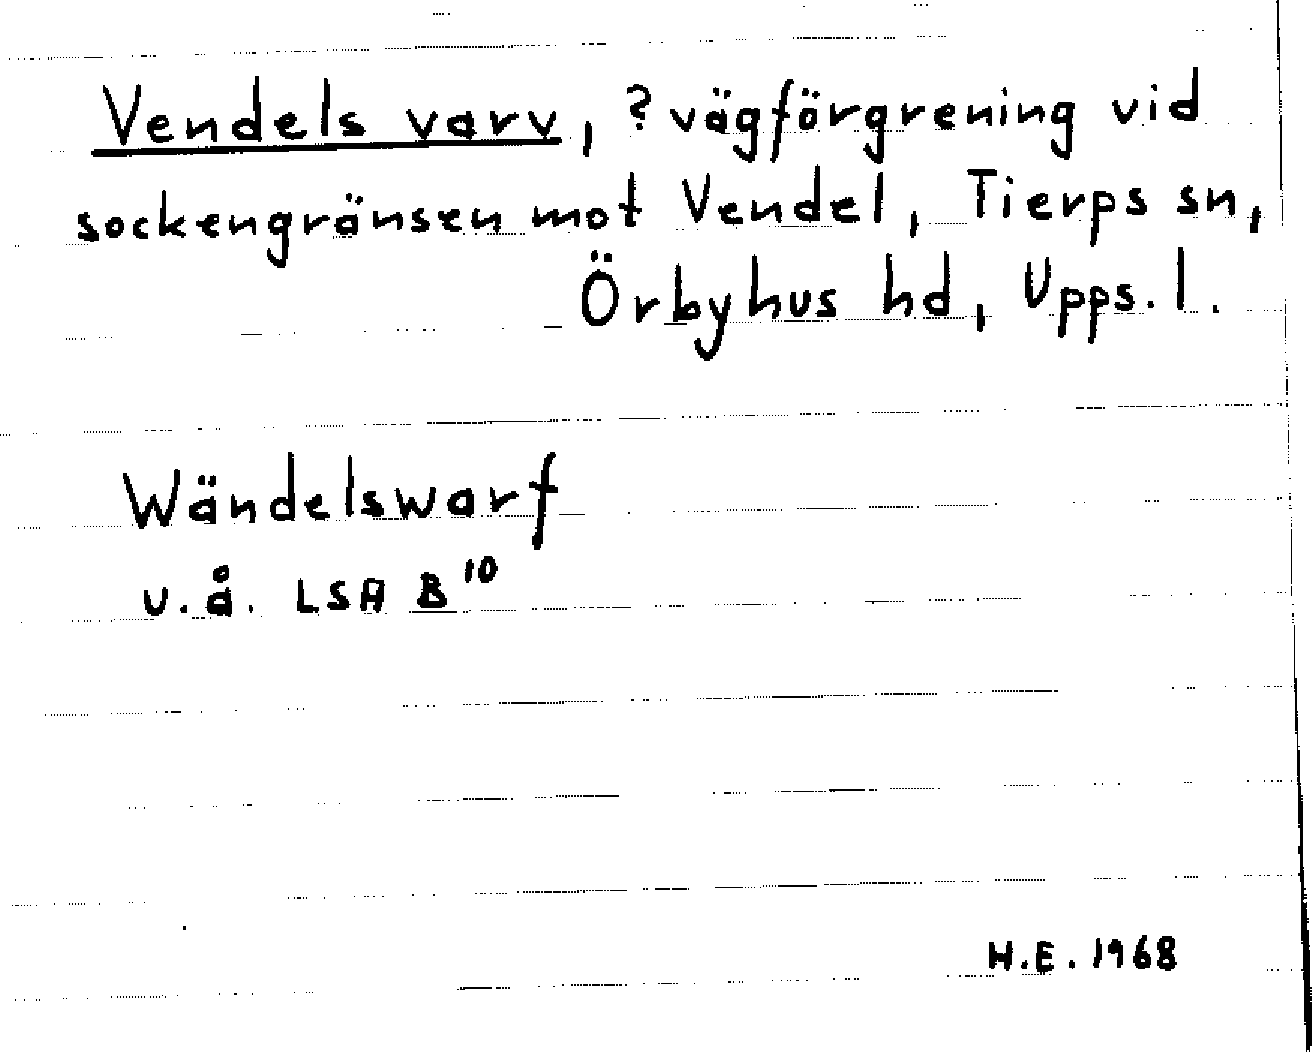 Vendels varv, ? vägförgrening vid
sockengränsen mot Vendel, Tierps sn,
Örbyhus hd, Upps. l.
Wändelswarf
u.å. LSA B¹⁰
H.E. 1968